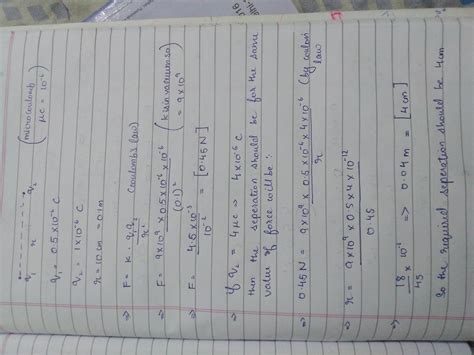 q₁ r q₂ (microcoulomb μc = 10⁻⁶)
q₁ = 0.5×10⁻⁶ C
q₂ = 1×10⁻⁶ C
r = 10cm = 0.1m
⇒ F = k · q₁q₂ / r² (Coulomb's law)
⇒ F = 9×10⁹ × 0.5×10⁻⁶ × 10⁻⁶ / (0.1)² (k is in vacuum so = 9×10⁹)
⇒ F = 4.5×10⁻³ / 10⁻² = [0.45N]
⇒ if q₂ = 4μc ⇒ 4×10⁻⁶ C
then the seperation should be for the same
value of force will be :
⇒ 0.45N = 9×10⁹ × 0.5×10⁻⁶ × 4×10⁻⁶ / r (by coulom law)
⇒ r = 9×10⁹ × 0.5 × 4×10⁻¹² / 0.45
⇒ 18 / 45 × 10⁻¹ ⇒ 0.04m = [4cm]
So the required seperation should be 4cm